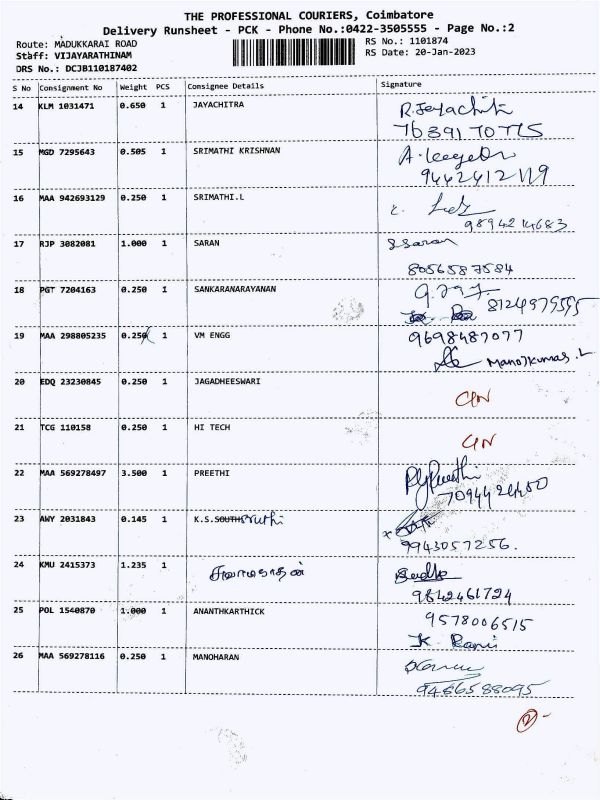 THE PROFESSIONAL COURIERS, Coimbatore
Delivery Runsheet - PCK - Phone No.:0422-3505555 - Page No.:2
Route: MADUKKARAI ROAD RS No.: 1101874
Staff: VIJAYARATHINAM RS Date: 20-Jan-2023
DRS No.: DCJB110187402
S No Consignment No Weight PCS Consignee Details Signature
14 KLM 1031471 0.650 1 JAYACHITRA R.Jeyachitr
7639170775
15 MGD 7295643 0.505 1 SRIMATHI KRISHNAN
9442412119
16 MAA 942693129 0.250 1 SRIMATHI.L
9894214683
17 RJP 3082081 1.000 1 SARAN S.Saran
8056587584
18 PGT 7204163 0.250 1 SANKARANARAYANAN
8124979595
19 MAA 298805235 0.250 1 VM ENGG 9698487077
Manojkumar.L
20 EDQ 23230845 0.250 1 JAGADHEESWARI
21 TCG 110158 0.250 1 HI TECH
22 MAA 569278497 3.500 1 PREETHI
7094424450
23 AWY 2031843 0.145 1 K.S.SOUTH Sruthi
9943057256.
24 KMU 2415373 1.235 1
9842461724
25 POL 1540870 1.000 1 ANANTHKARTHICK 9578006515
K. Rani
26 MAA 569278116 0.250 1 MANOHARAN
9486588095